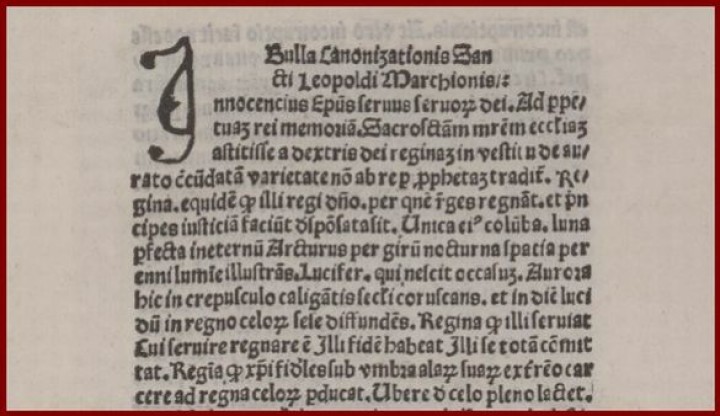 Bulla Canonizationis San
cti Leopoldi Marchionis/:
Innocencius Ep̄us seruus seruoꝝ dei. Ad ꝑpe/
tuaꝫ rei memoriā. Sacrosctām mr̄em eccl̄iaꝫ
astitisse a dextris dei reginaꝫ in vestitu de au/
rato c̄cūdatā varietate nō ab re ꝑ ꝓphetaꝫ tradit̄. Re/
gina. equidē ꝙ illi regi dn̄o. per quē r̄ges regnāt. et p̄n
cipes iusticiā faciūt dispōsata sit. Unica eiꝰ colūba. luna
ꝑfecta in eternū Arcturus per girū nocturna spatia per
enni lumīe illustrās. Lucifer. qui nescit occasuꝫ. Aurora
hic in crepusculo caligātis secl̄i coruscans. et in diē luci
dū in regno celoꝝ sese diffundēs. Regina ꝙ illi seruiat
Cui seruire regnare ē Illi fidē habeat Illi se totā cōmit
tat. Regīa ꝙ xp̄i fidēles sub vmbra alaꝝ suaꝝ ex frēo car
cere ad regna celoꝝ ꝑducat. Ubere d̄ celo pleno lactet.